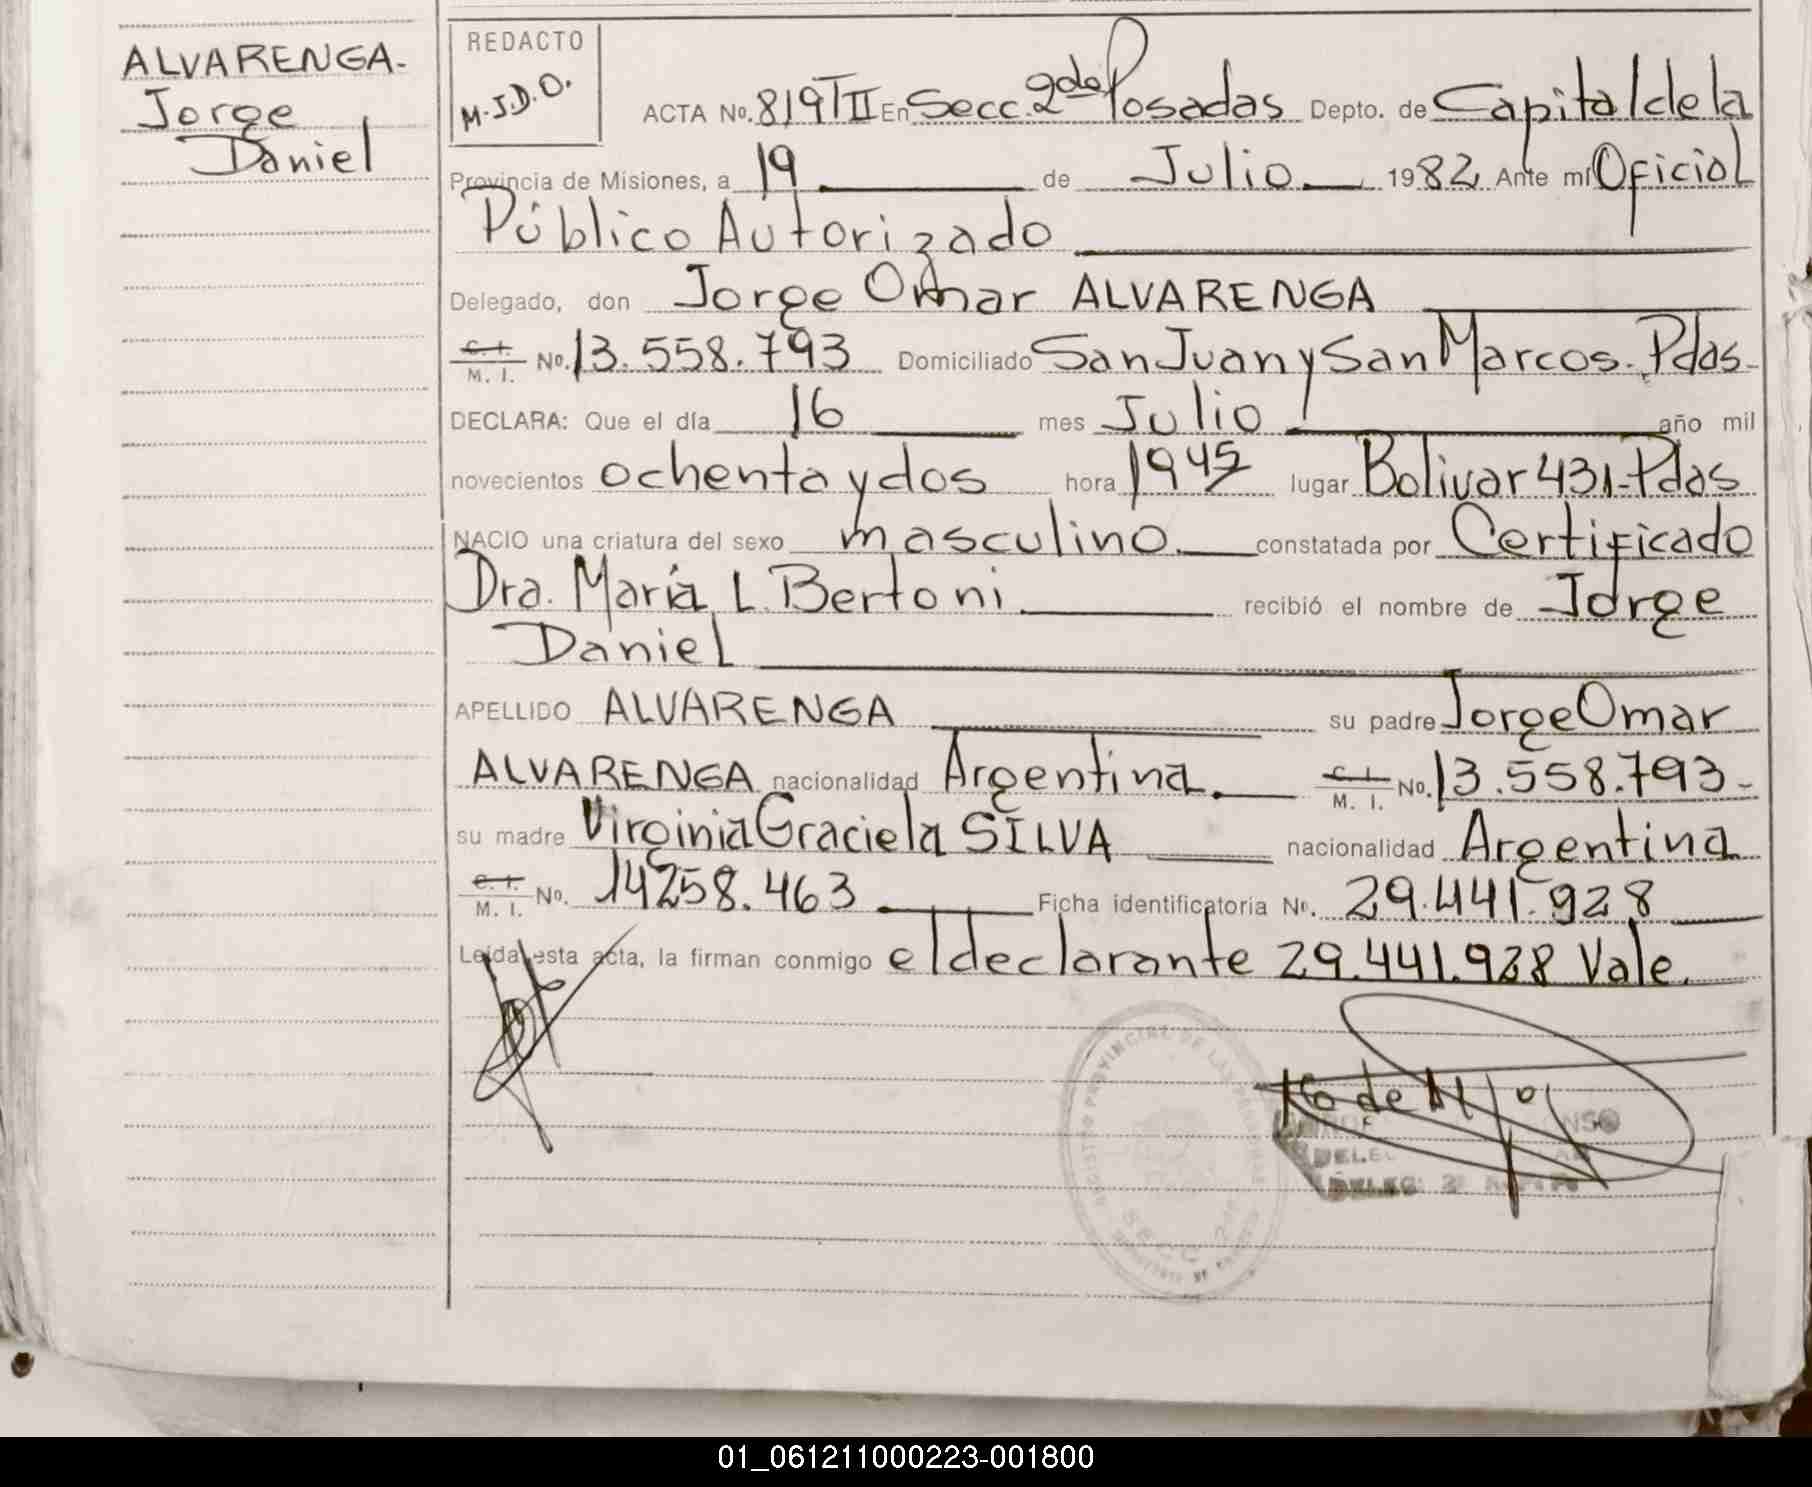 ALVARENGA-
Jorge
Daniel
REDACTO
M.J.D.O.
ACTA No. 819 T II En Secc. 2da Posadas Depto. de Capital de la
Provincia de Misiones, a 19 de Julio 1982 Ante mí Oficial
Público Autorizado
Delegado, don Jorge Omar ALVARENGA
C. I. M. I. No. 13.558.793 Domiciliado San Juan y San Marcos. Pdas-
DECLARA: Que el día 16 mes Julio año mil
novecientos ochenta y dos hora 1945 lugar Bolivar 431-Pdas
NACIO una criatura del sexo masculino constatada por Certificado
Dra. María L. Bertoni recibió el nombre de Jorge
Daniel
APELLIDO ALVARENGA su padre Jorge Omar
ALVARENGA nacionalidad Argentina. C. I. M. I. No. 13.558.793-
su madre Virginia Graciela SILVA nacionalidad Argentina
C. I. M. I. No. 14258.463 Ficha identificatoria No. 29.441.928
Leída esta acta, la firman conmigo el declarante 29.441.928 Vale.
REGISTRO PROVINCIAL DE LAS PERSONAS
SECC. 2
01_061211000223-001800